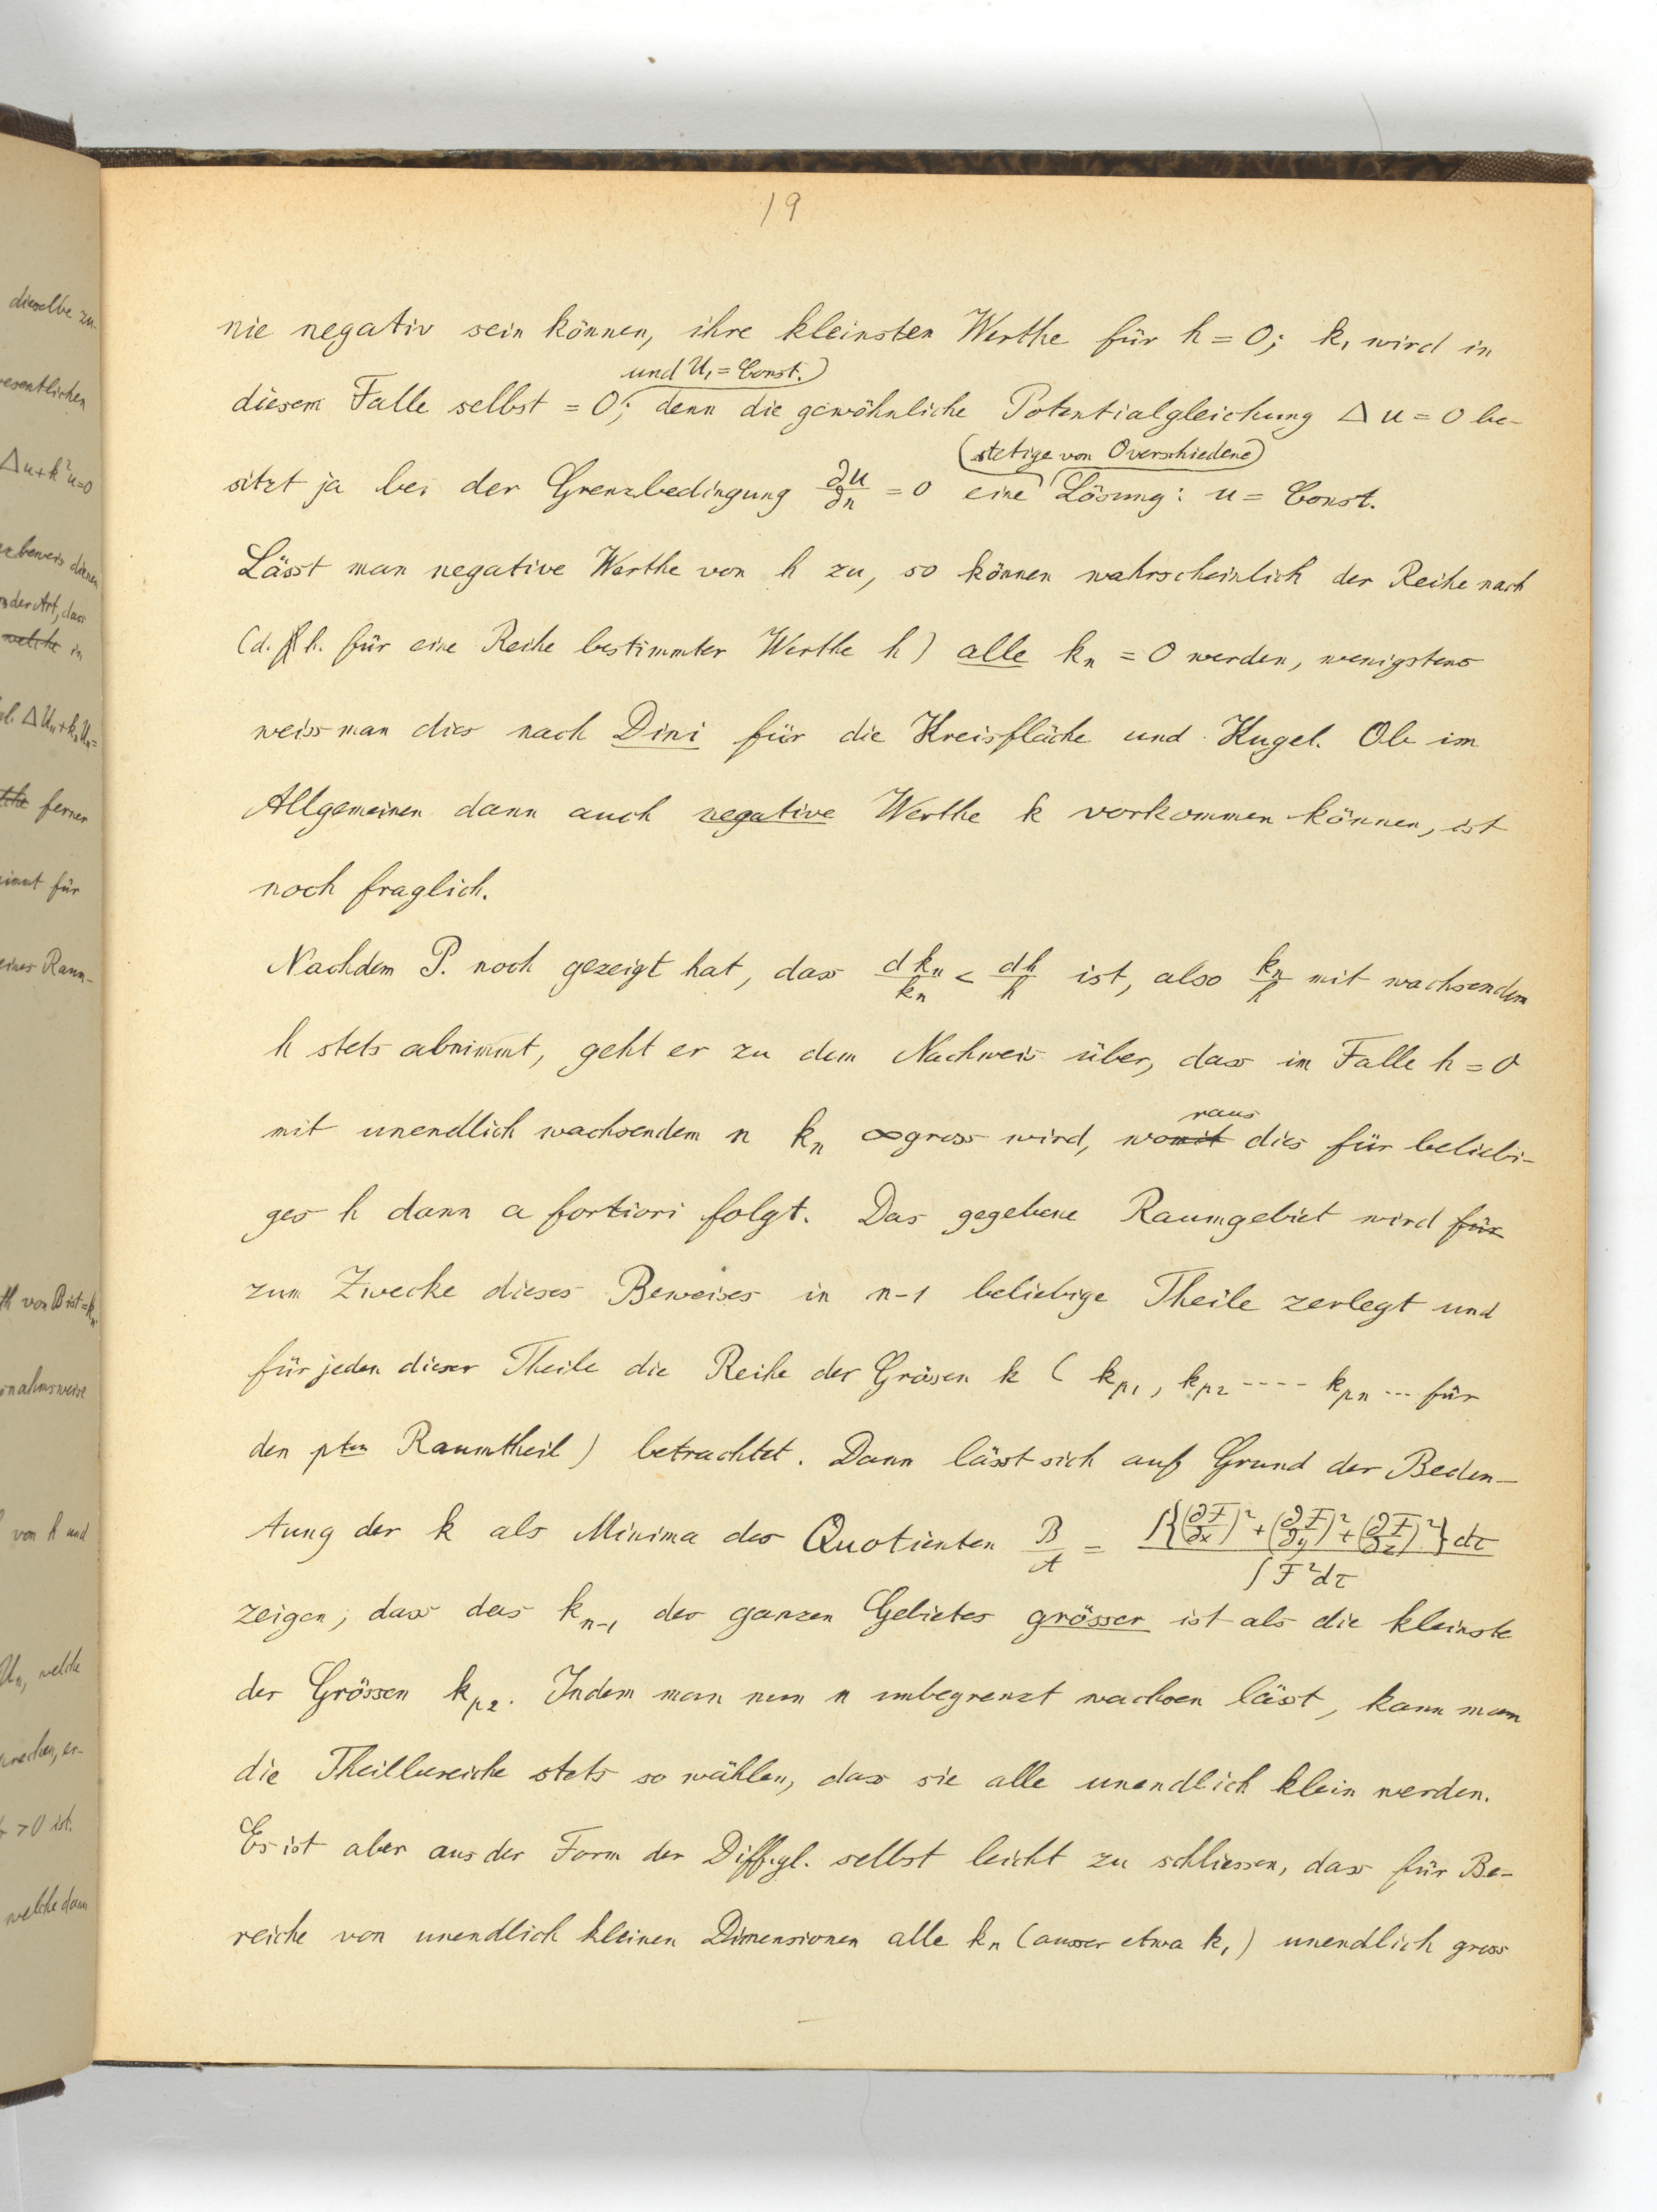 19
nie negativ sein können, ihre kleinsten Werthe für h = 0; k₁ wird in
und U₁ = Const.
diesem Falle selbst = 0; denn die gewöhnliche Potentialgleichung Δu = 0 be-
stetige von 0 verschiedene
sitzt ja bei der Grenzbedingung ∂u/∂n = 0 eine Lösung: u = Const.
Lässt man negative Werthe von h zu, so können wahrscheinlich der Reihe nach
(d. h. für eine Reihe bestimmter Werthe h) alle kₙ = 0 werden, wenigstens
weiss man dies nach Dini für die Kreisfläche und Kugel. Ob im
Allgemeinen dann auch negative Werthe k vorkommen können, ist
noch fraglich.
Nachdem P. noch gezeigt hat, dass dkₙ/kₙ < dh/h ist, also kₙ/h mit wachsendem
h stets abnimmt, geht er zu dem Nachweis über, dass im Falle h = 0
raus
mit unendlich wachsendem n kₙ ∞ gross wird, womit dies für beliebi-
ges h dann a fortiori folgt. Das gegebene Raumgebiet wird für
zum Zwecke dieses Beweises in n-1 beliebige Theile zerlegt und
für jeden dieser Theile die Reihe der Grössen k ( k_{p1}, k_{p2} ---- k_{pn} ... für
den pten Raumtheil) betrachtet. Dann lässt sich auf Grund der Bedeu-
tung der k als Minima des Quotienten B/A = ∫{(∂F/∂x)² + (∂F/∂y)² + (∂F/∂z)²}dτ / ∫F²dτ
zeigen, dass das kₙ₋₁ des ganzen Gebietes grösser ist als die kleinste
der Grössen k_{p2}. Indem man nun n unbegrenzt wachsen lässt, kann man
die Theilbereiche stets so wählen, dass sie alle unendlich klein werden.
Es ist aber aus der Form der Diffgl. selbst leicht zu schliessen, dass für Be-
reiche von unendlich kleinen Dimensionen alle kₙ (ausser etwa k₁) unendlich gross
dieselbe zu-
esentlichen
Δu+k²u=0
der Art, dass
welche in
ferner
immt für
eines Raum-
von B ist = k
nahmsweise
von h und
Uₙ, welche
> 0 ist.
welche dann